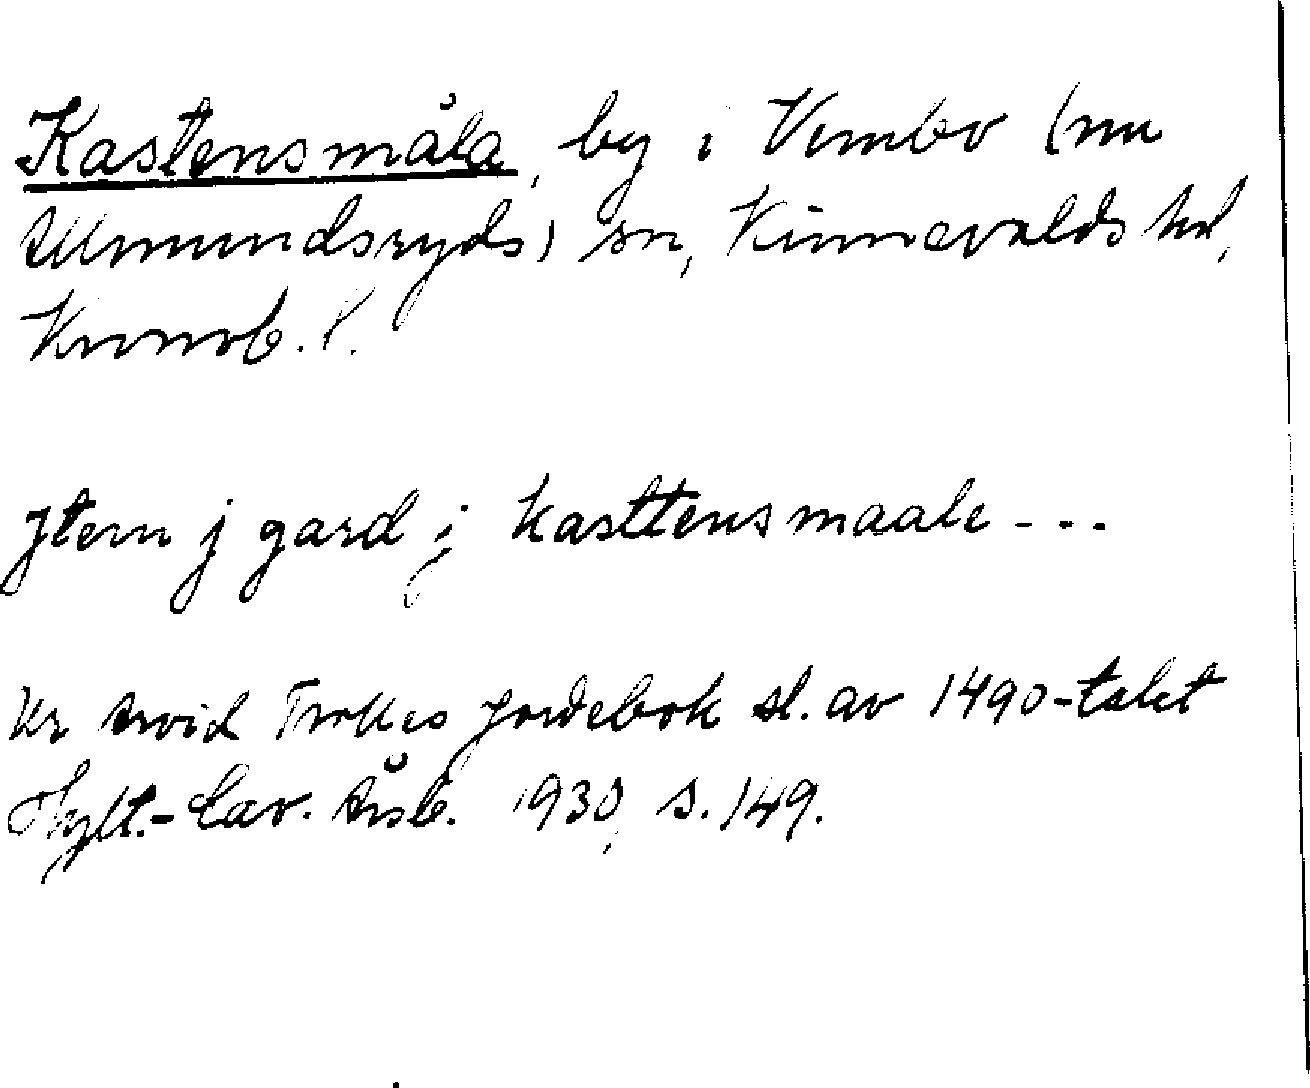 Kastensmåla, by i Vembo (nu
Almundsryds) sn, Kinnevalds hd,
Kronob. l.
Jtem j gard j kasttensmaale ---
Ur Arvid Trolles jordebok sl. av 1490-talet
Hylt.-Cav. Årsb. 1930, s. 149.